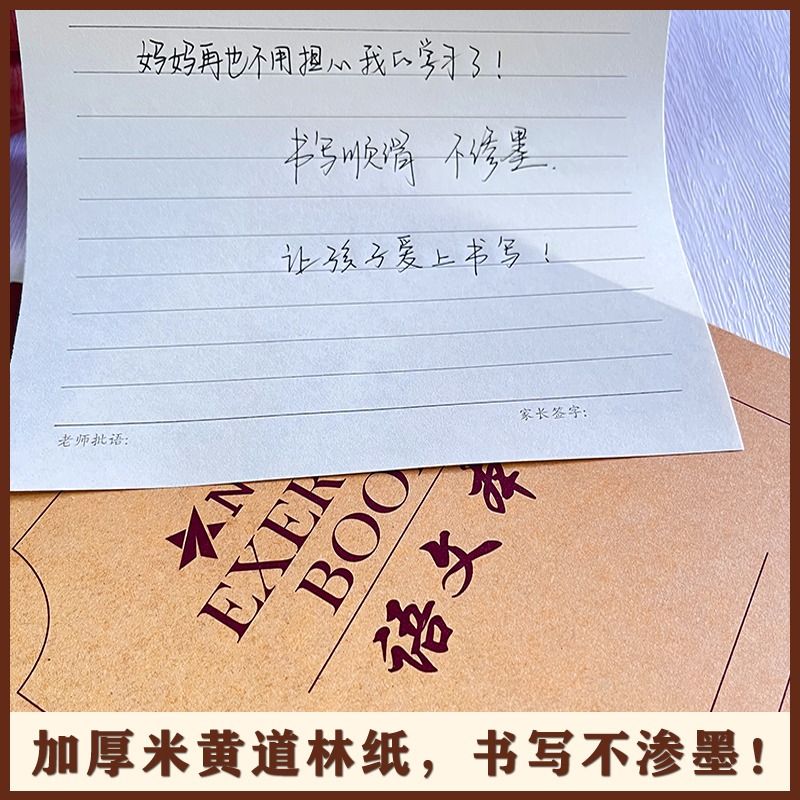 妈妈再也不用担心我的学习了！
书写顺滑 不渗墨.
让孩子爱上书写！
家长签字：
老师批语：
EXER
BOO
语文
加厚米黄道林纸，书写不渗墨！